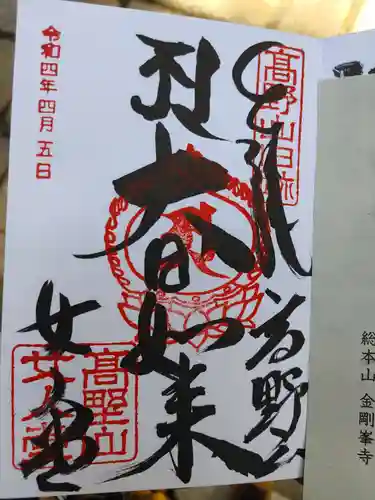 高野山
奉拝
高野山旧跡
大日如来
女人堂
高野山
女人堂
令和四年四月五日
総本山 金剛峯寺